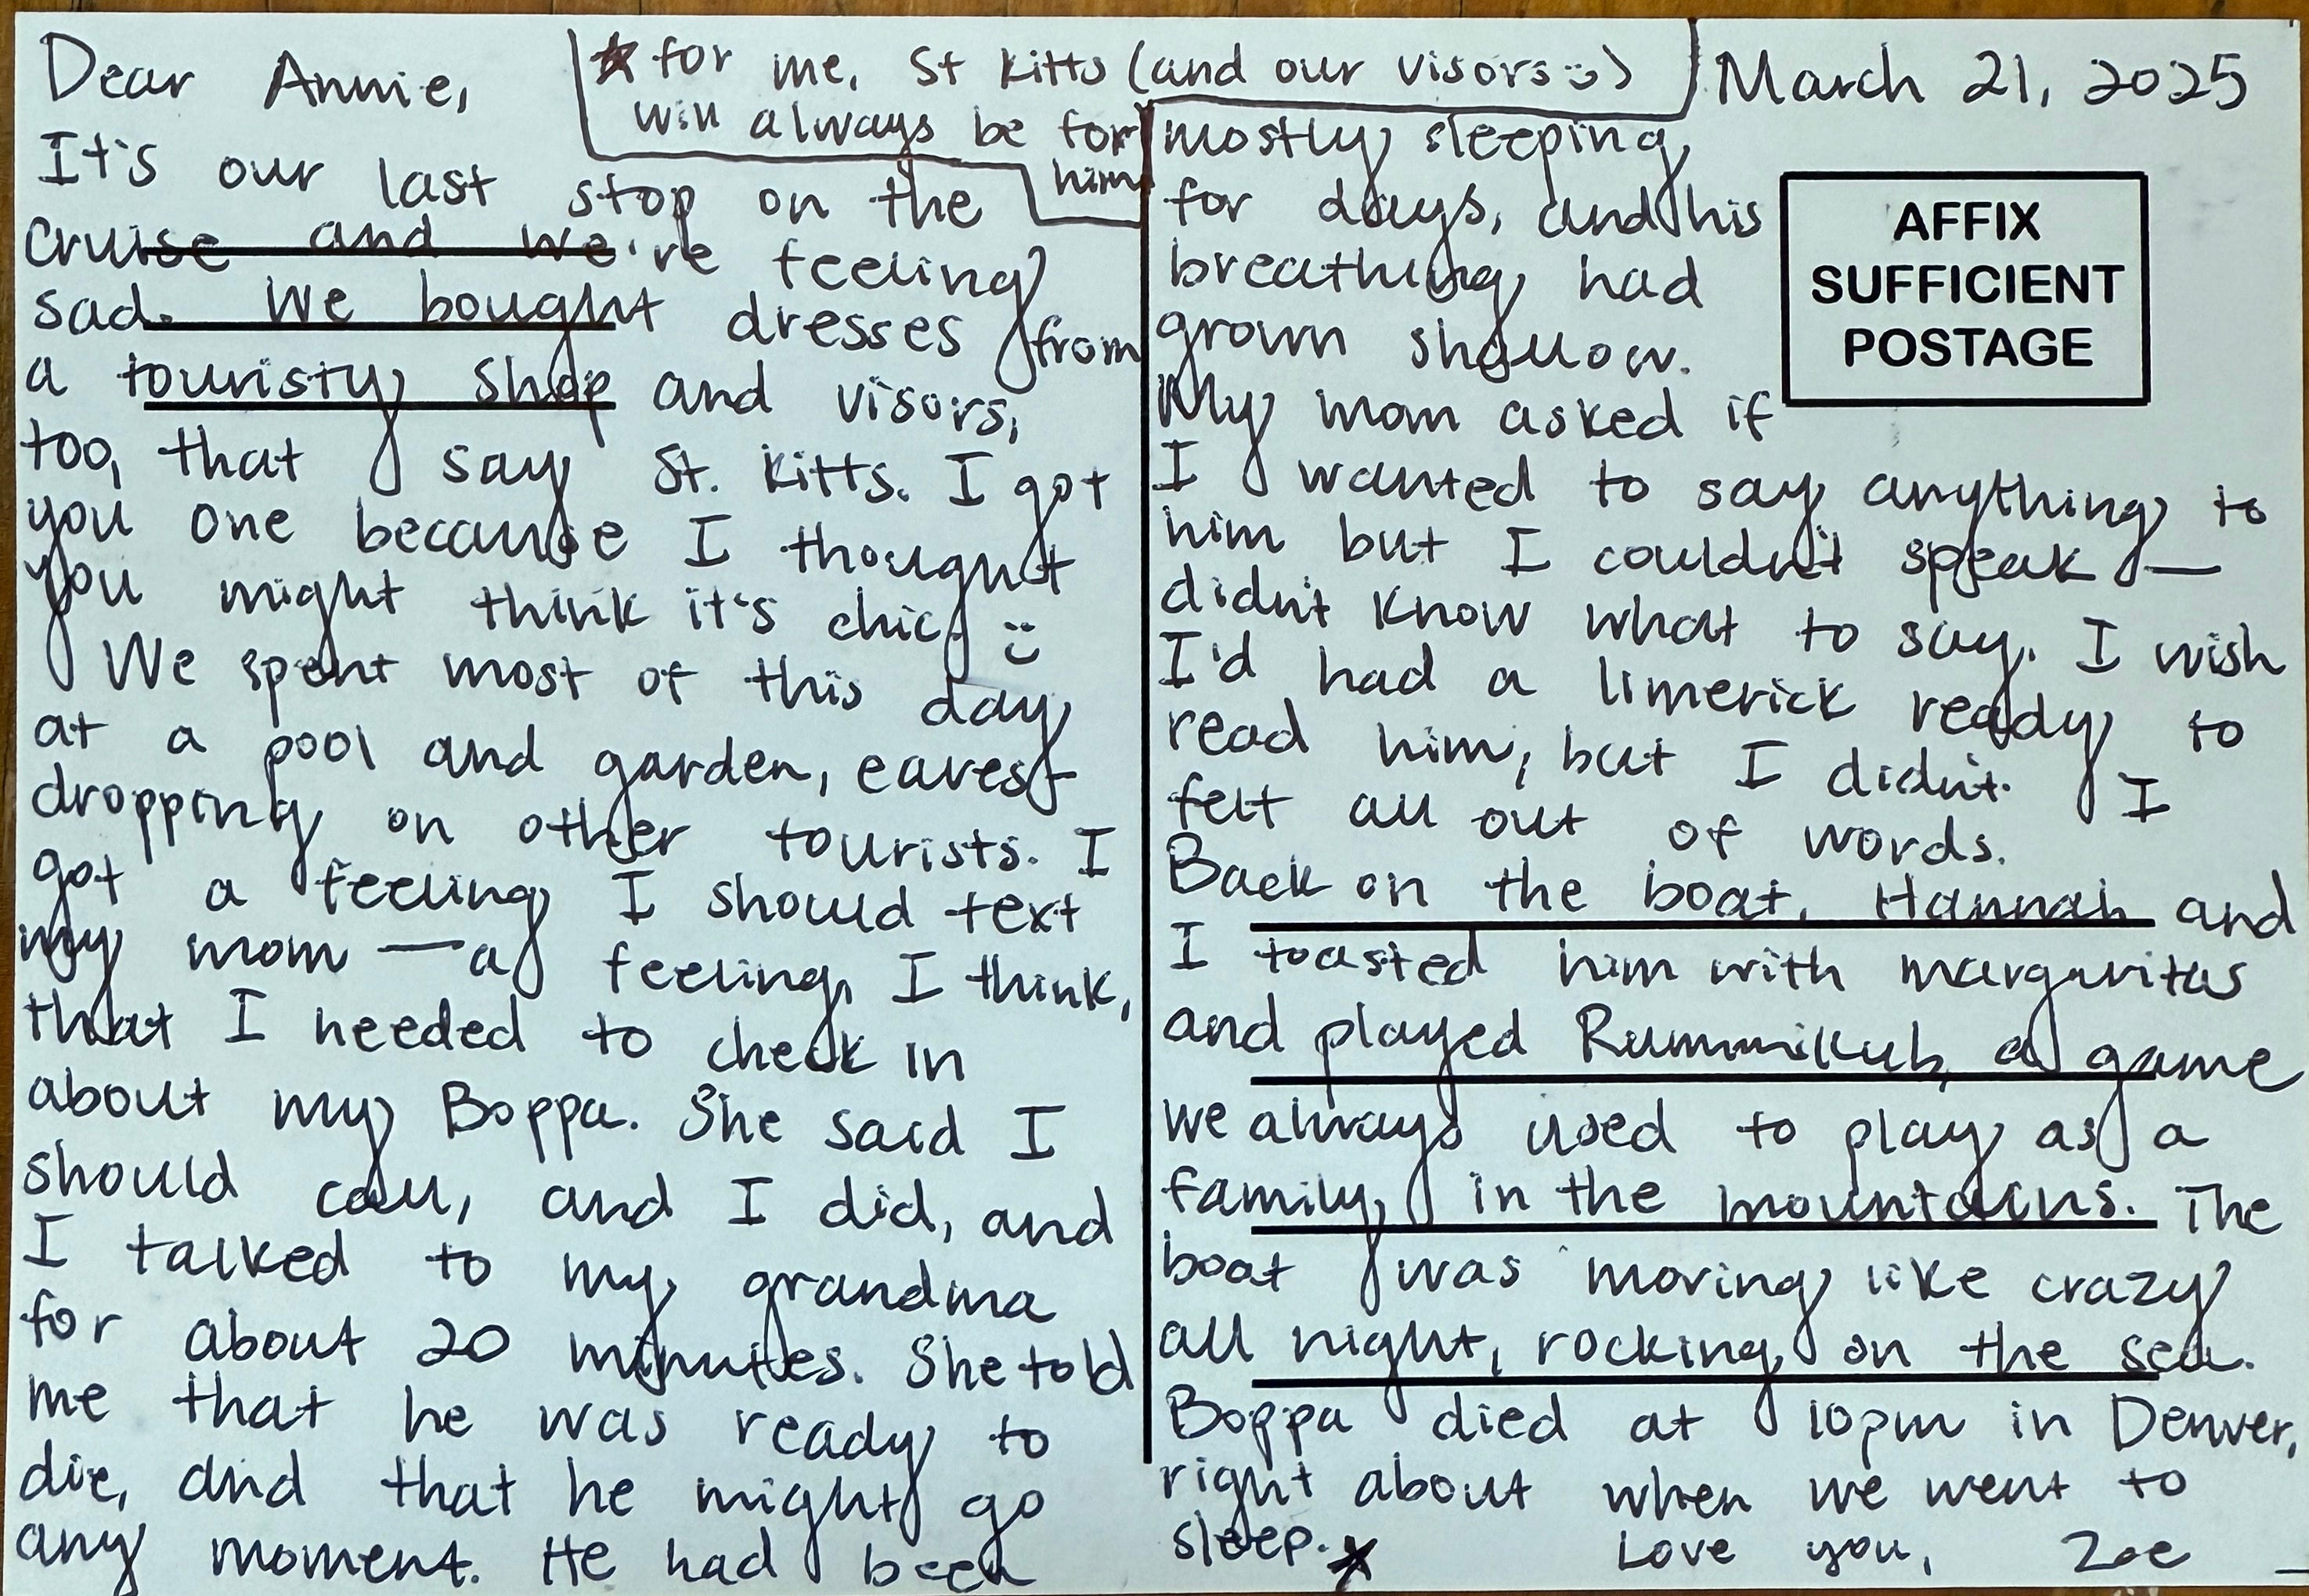 Dear Annie,
It's our last stop on the
cruise and we're feeling
sad. We bought dresses from
a touristy shop and visors,
too, that say St. Kitts. I got
you one because I thought
you might think it's chic. :)
We spent most of this day
at a pool and garden, eaves-
dropping on other tourists. I
got a feeling I should text
my mom — a feeling, I think,
that I needed to check in
about my Boppa. She said I
should call, and I did, and
I talked to my grandma
for about 20 minutes. She told
me that he was ready to
die, and that he might go
any moment. He had been
mostly sleeping
for days, and his
breathing had
grown shallow.
My mom asked if
I wanted to say anything to
him but I couldn't speak —
didn't know what to say. I wish
I'd had a limerick ready to
read him, but I didn't. I
felt all out of words.
Back on the boat, Hannah and
I toasted him with margaritas
and played Rummikub, a game
we always used to play as a
family, in the mountains. The
boat was moving like crazy
all night, rocking on the sea.
Boppa died at 10pm in Denver,
right about when we went to
sleep.* Love you, Zoe
* for me, St Kitts (and our visors :))
will always be for
him
March 21, 2025
AFFIX
SUFFICIENT
POSTAGE